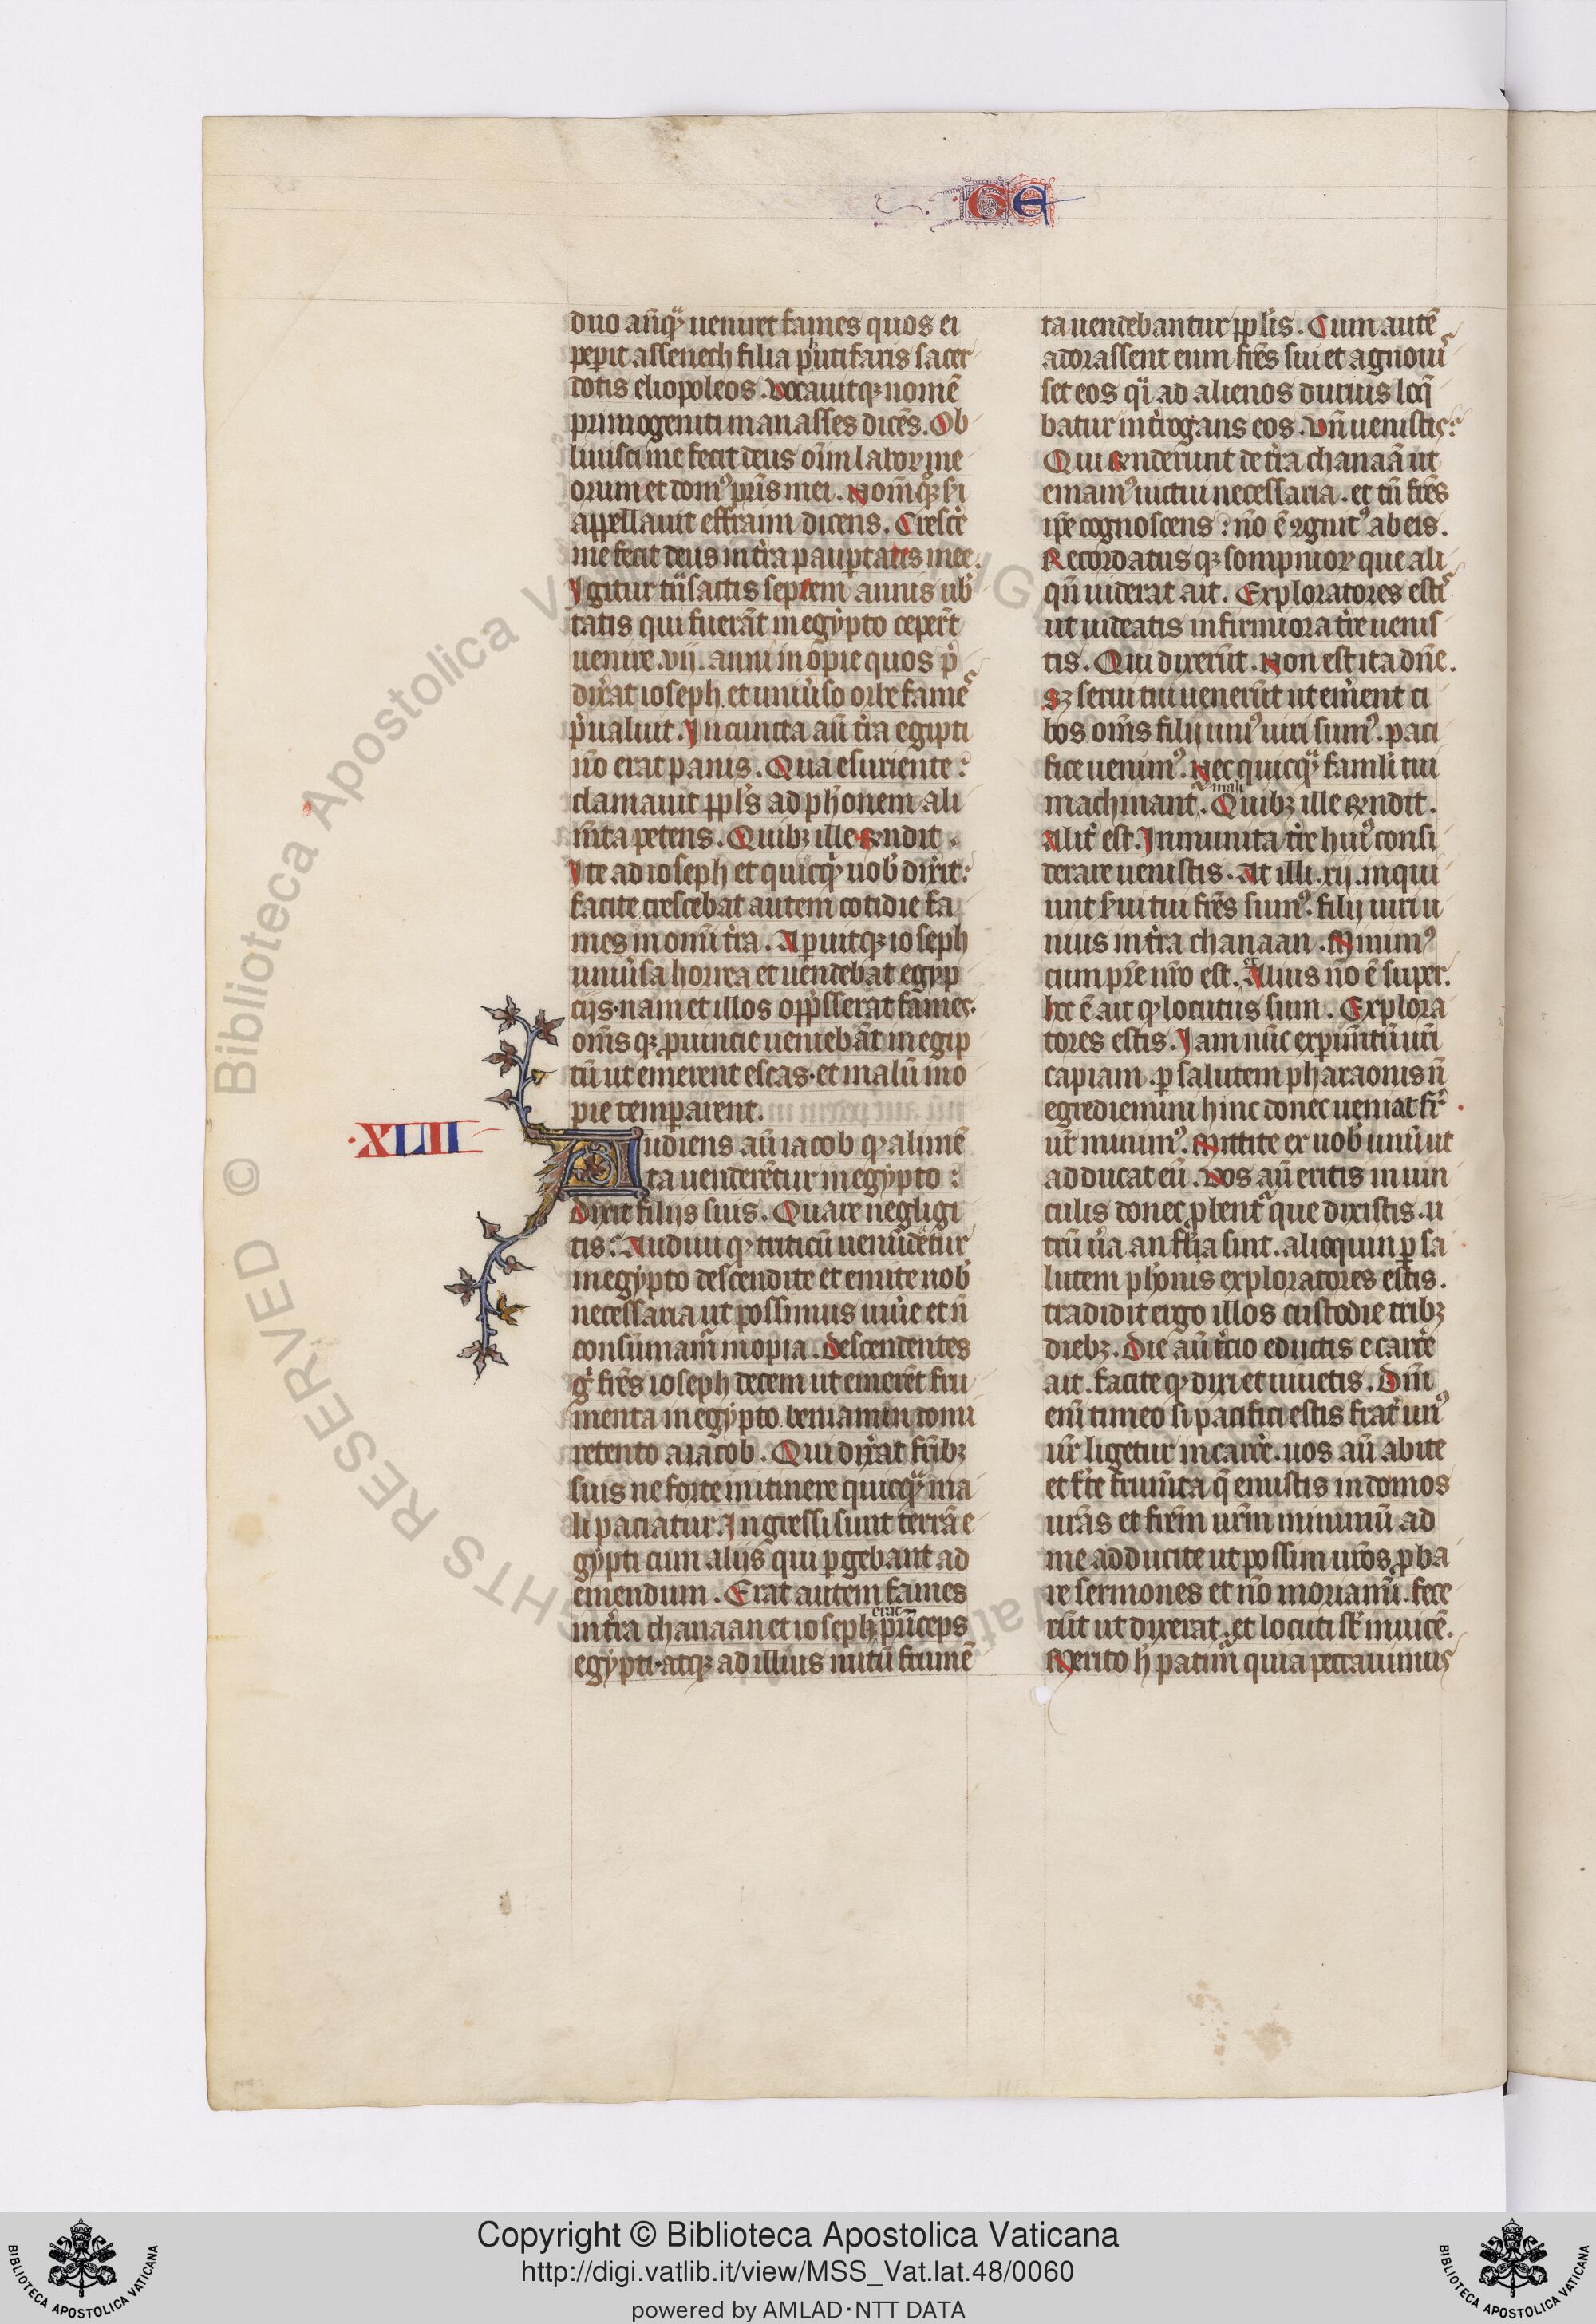 GE
duo an̄qᷓ ueniret fames quos ei
peperit assenech filia putifaris sacer
dotis eliopoleos. vocauitqꝫ nomē
primogeniti manasses dicēs. Ob
liuisci me fecit deus oīm laboꝝ me
orum et domꝰ pr̄is mei. Nom̄qꝫ sc̄i
appellauit effraim dicens. Cresce̾
me fecit deus in t̄ra paup̄tatis mee.
Igitur tn̄sactis septem annis ub̾
tatis qui fuerāt in egypto ceper̄t
uenire .vij. anni inopie quos p̄
dix̾at ioseph. et uniu̾so orbe fameˢ
p̄ualuit. In cuncta aū t̄ra egipti
nō erat panis. Qua esuriente:
clamauit ppl̄s ad ph̾onem ali
m̄ta petens. Quibꝫ ille rn̄dit.
Ite ad ioseph et quicqͥd uob̾ dix̾it:
facite crescebat autem cotidie fa
mes in om̄i t̄ra. Aperuitqꝫ ioseph
uniu̾sa horrea et uendebat egyp
ciis. nam et illos opp̄sserat fames.
om̄s qꝫ ꝓuincie ueniebāt in egip
tū ut emerent escas. et malū ino
pie temperarent.
XLIIII
Audiens aū iacob qꝙ alimē
ta uenderētur in egypto:
Dixit filijs suis. Quare negligi
tis: Audiui qꝙ triticū uenūdetur
in egypto descendite et emite nob̾
necessaria ut possimus uiuere et n̄
consūmamͬ inopia. descendentes
gͦ fr̄es ioseph decem ut emerēt fru
menta in egypto. beniamin domi
retento a iacob. Qui dix̾at fr̄ibꝫ
suis ne forte in itinere quicqᷓ ma
li paciatur. Ingressi sunt terrā e
gypti cum alijs qui ꝑgebant ad
emendum. Erat autem fames
erat
in t̄ra chanaan et ioseph pⁱnceps
egypti. atqꝫ ad illius nutū frumē
ta uendebantur ppl̄is. Cum autē
adorassent eum fr̄es sui et agnouiˢ
set eos qͣi ad alienos durius loq̄
batur int̾rogans eos. vn̄ uenistis:
Qui rn̄derunt de t̄ra chanaā ut
emamꝰ uictui necessaria. et tn̄ fr̄es
ip̄e cognoscens: nō ē ꝯgnitꝰ ab eis.
Recordatus qꝫ sompnioꝝ que ali
qn̄ uiderat ait. Exploratores estiˢ
ut uideatis infirmiora t̄re uenis
tis. Qui dixerūt. Non est ita dn̄e.
Sꝫ serui tui uenerūt ut emerent ci
bos om̄s filij uniꝰ uiri sumꝰ. paci
fice uenimꝰ. Nec quicqᷓ faml̄i tui
mali
machinantͬ. Quibꝫ ille rn̄dit.
Alit̾ est. Inmunita t̄re huiꝰ consi
derare uenistis. At illi .xij. inqui
unt serui tui fr̄es sumꝰ. filij uiri u
nius in t̄ra chanaan. Minimꝰ
cum pr̄e nr̄o est. Alius nō ē super.
hec ē ait qꝙ locutus sum. Explora
tores estis. Iam nūc experim̄tū ur̄i
capiam. ꝑ salutem pharaonis n̄
egrediemini hinc donec ueniat fr̄
ur̄ minimꝰ. Mittite ex uob̾ unū ut
adducat eū. vos aū eritis in uin
culis donec ꝓbentͬ que dixistis. u
trū u̾a an fl̄sa sint. alioquin ꝑ sa
lutem ph̾onis exploratores estis.
tradidit ergo illos custodie tribꝫ
diebꝫ. Die aū t̾cio eductis e carce̾
ait. facite qꝙ dixi et uiuetis. Dn̄m
eni̅ timeo si pacifici estis frat̾ unꝰ
ur̄ ligetur in carce̾. uos aū abite
et fer̾te frum̄ta q̄ emistis in domos
ur̄as et fr̄em ur̄m minimū ad
me adducite ut possim ur̄os ꝓba
re sermones et nō moriamī. fece
rūt ut dixerat. et locuti st̄ inuicē.
Merito h̾ patimͬ quia peccauimus
Copyright © Biblioteca Apostolica Vaticana
http://digi.vatlib.it/view/MSS_Vat.lat.48/0060
powered by AMLAD·NTT DATA
BIBLIOTECA APOSTOLICA VATICANA
BIBLIOTECA APOSTOLICA VATICANA